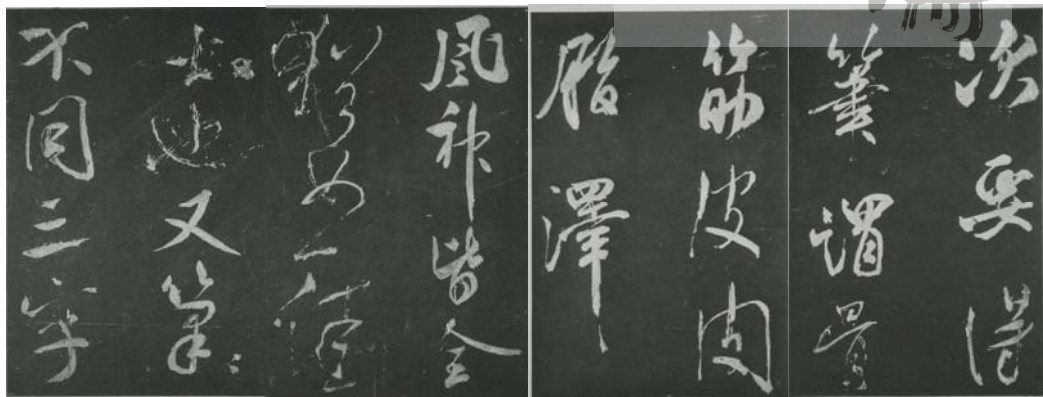 次要得
筆謂骨
筋皮肉
脂澤
風神皆全
猶如一佳
士也又筆〻
不同三字